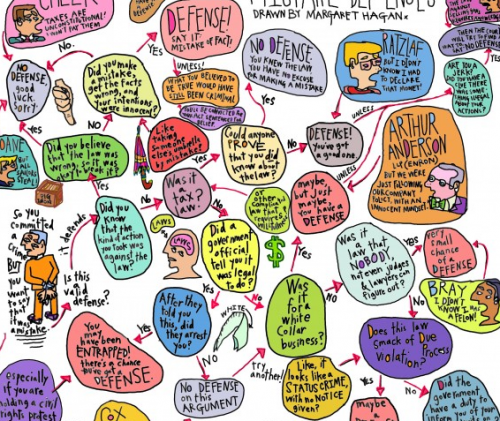 TAKES ARE
UNCONSTITUTIONAL!
I WON'T PAY THEM
DEFENSE!
SAY IT
MISTAKE OF FACT!
MISTAKE DEFENSES
DRAWN BY MARGARET HAGAN
NO DEFENSE
YOU KNEW THE LAW
YOU HAVE NO EXCUSE
FOR MAKING A MISTAKE
RATZLAF
BUT I DIDN'T
KNOW I HAD
TO DECLARE
THAT MONEY!
ARE YOU A
JERK?
NO.
NO
DEFENSE.
good
luck.
Sorry
Did you make
a mistake,
get the facts
wrong, and
your intentions
were innocent?
YES
WHAT YOU BELIEVED TO
BE TRUE WOULD HAVE
STILL BEEN CRIMINAL
UNLESS
Yes
UNLESS
NO
Like
taking
someone
else's umbrella
by mistake
Could anyone
PROVE
that you did
know about
the law?
NO
DEFENSE!
you've got
a good one.
UNLESS
ARTHUR
ANDERSON
(cf. ENRON)
BUT WE WERE
JUST FOLLOWING
OUR COMPANY
POLICY, WITH AN
INNOCENT MINDSET!
Did you believe
that the law was
wrong, so it was
ok to break it?
NO
Was it
a tax
law?
Yes
or other
complicated
law that
requires
willfulness
maybe,
but just
maybe,
you have a
DEFENSE
So you
committed
a crime
BUT
you
want to
say that
it was a
mistake.
it depends
Is this
a valid
defense?
Did you
know
that the
kind of action
you took was
against the
law?
NO
Yes
LAWS
LAWS
Did a
government
official
tell you it
was legal
to do?
$
Yes
NO
Was it
a law that
NOBODY,
not even judges
& lawyers can
figure out?
Yes
very
small
chance
of a
DEFENSE
BRAY
I DIDN'T
KNOW I WAS
A FELON!
After they
told you
this, did they
arrest you?
Yes
NO
WHITE
Was
it for
a
white
collar
business?
NO
Does this law
smack of Due
Process
Violation?
You
may
have been
ENTRAPPED!
there's a chance
you've got a
DEFENSE.
NO DEFENSE
on this
ARGUMENT
try
another!
Like, it
looks like a
STATUS CRIME,
with no NOTICE
given?
YES
NO
Did the
government
have a duty to
inform you of your
especially
if you are
holding a civil
rights protest
COX
maybe